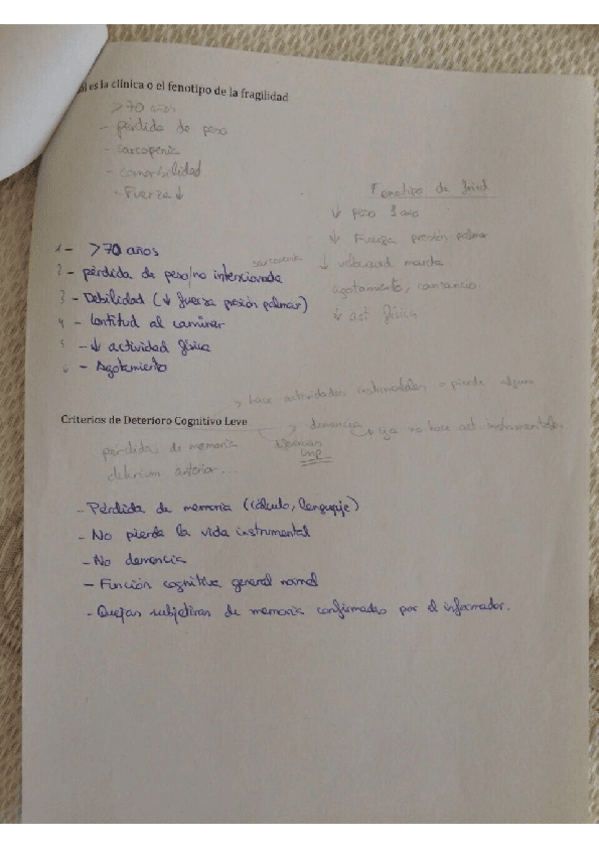 es la clínica o el fenotipo de la fragilidad
>70 años
- pérdida de peso
- sarcopenia
- comorbilidad
- Fuerza ↓
Fenotipo de Fried
↓ peso 1 año
↓ Fuerza presión palmar
↓ velocidad marcha
agotamiento, cansancio
↓ act. física
1 - >70 años
sarcopenia
2 - pérdida de peso/no intencionada
3 - Debilidad (↓ fuerza presión palmar)
4 - lentitud al caminar
5 - ↓ actividad física
6 - Agotamiento
→ hace actividades instrumentales o pierde alguna
Criterios de Deterioro Cognitivo Leve
→ demencia → ya no hace act. instrumentales
pérdidas de memoria
diferencian
imp
delirium anterior...
- Pérdida de memoria (cálculo, lenguaje)
- No pierde la vida instrumental
- No demencia
- Función cognitiva general normal
- Quejas subjetivas de memoria confirmadas por el informador.